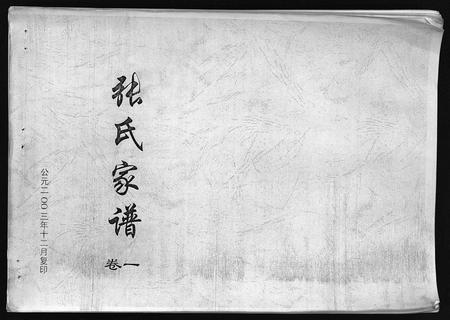 张氏家谱
卷一
公元二〇〇三年十二月复印